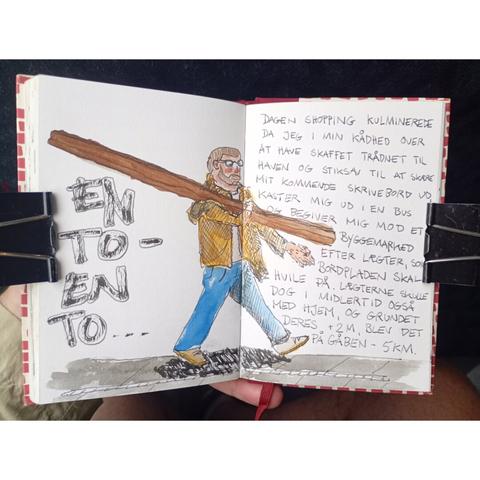 EN
TO-
EN
TO....
DAGEN SHOPPING KULMINEREDE
DA JEG I MIN KÅDHED OVER
AT HAVE SKAFFET TRÅDNET TIL
HAVEN OG STIKSAV TIL AT SKÆRE
MIT KOMMENDE SKRIVEBORD UD,
KASTER MIG UD I EN BUS
OG BEGIVER MIG MOD ET
BYGGEMARKED
EFTER LÆGTER, SOM
BORDPLADEN SKAL
HVILE PÅ. LÆGTERNE SKULLE
DOG I MIDLERTID OGSÅ
MED HJEM, OG GRUNDET
DERES +2M, BLEV DET
PÅ GÅBEN - 5KM.